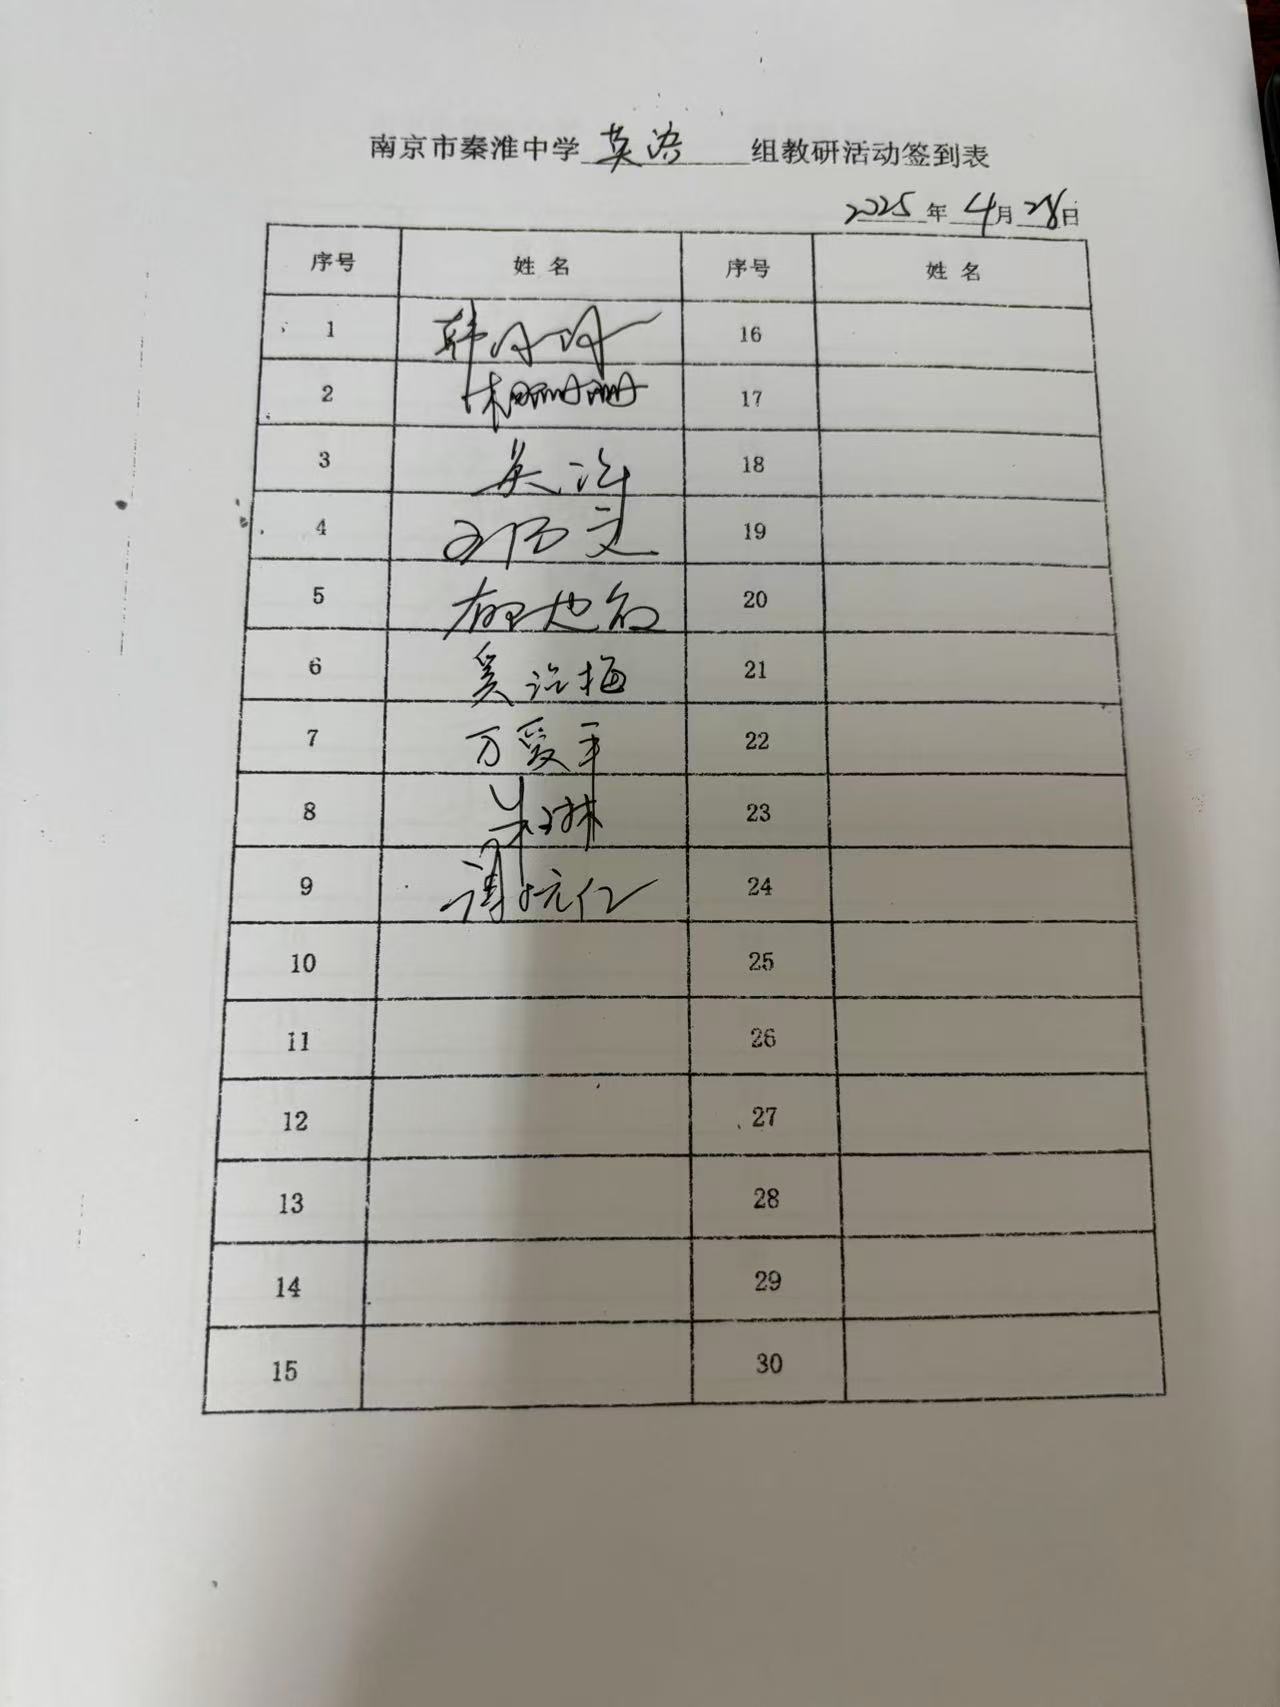 南京市秦淮中学 英语 组教研活动签到表
2025年 4月 28日
序号 姓名 序号 姓名
1 韩丹丹 16
2 17
3 吴 18
4 文 19
5 20
6 奚 梅 21
7 万爱平 22
8 朱琳 23
9 24
10 25
11 26
12 27
13 28
14 29
15 30